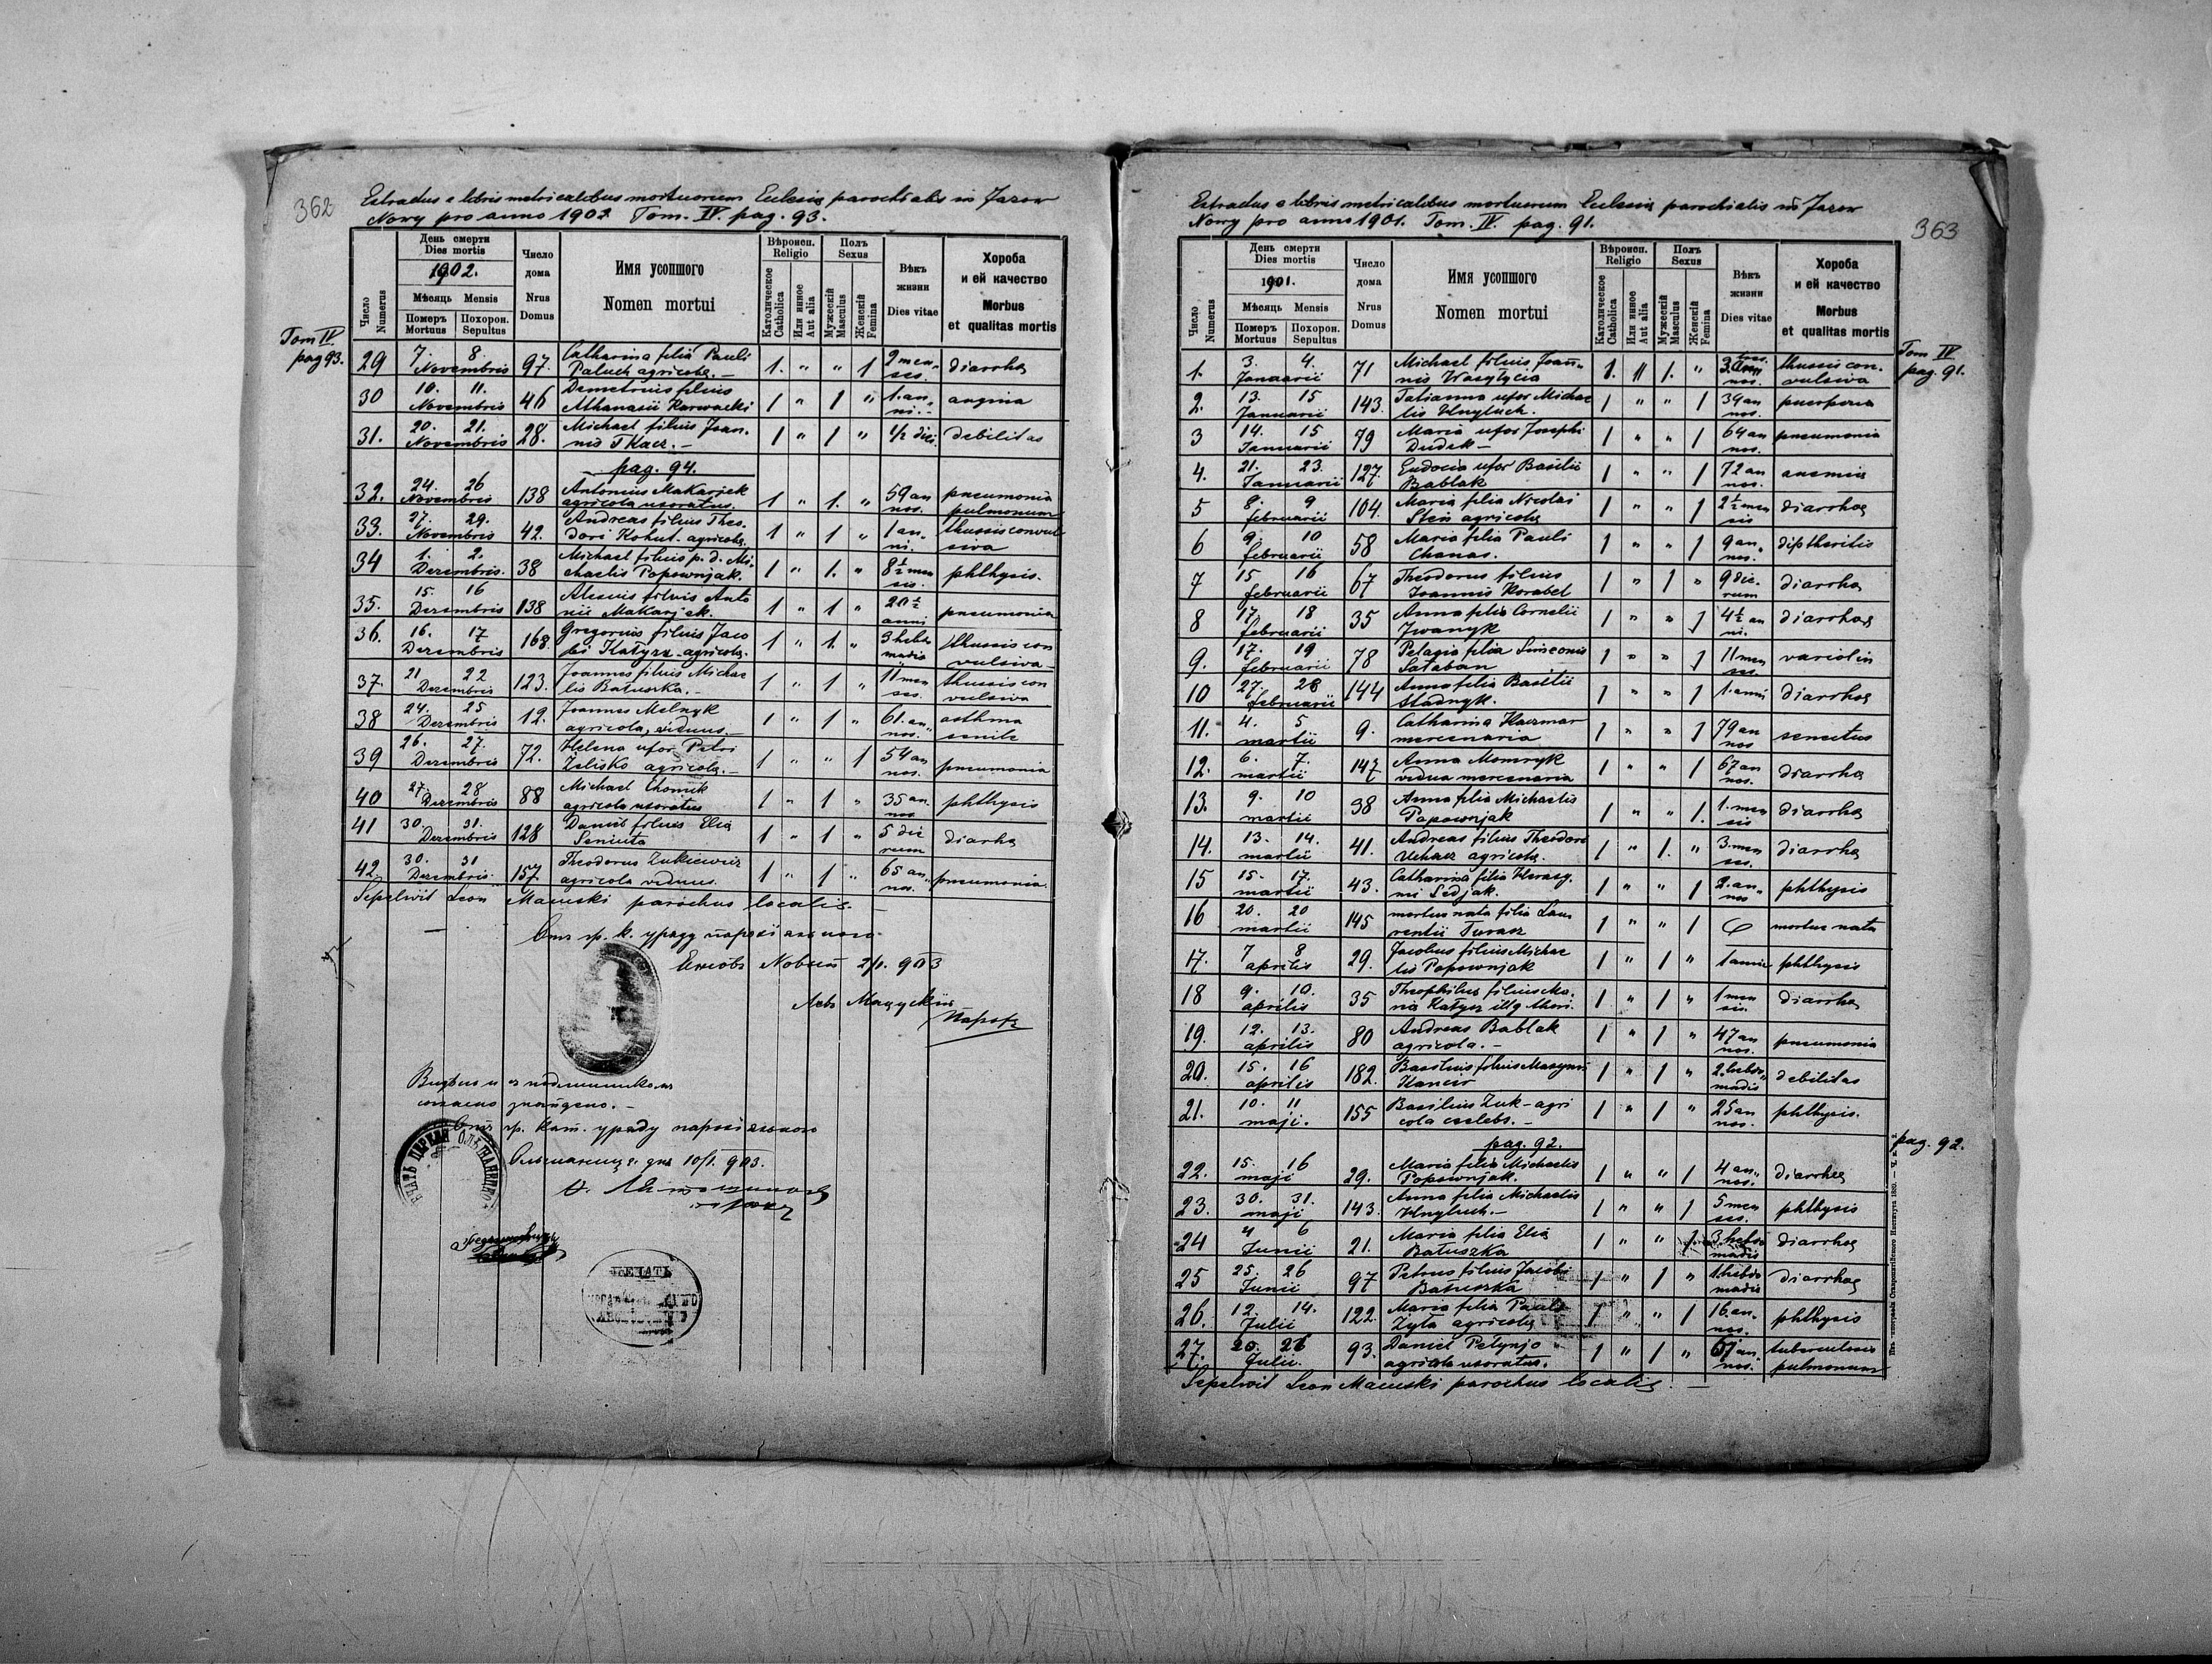 362
Extradus e libris metricalibus mortuorum Eclesia parochialis in Jazow
Nowy pro anno 1902. Tom. IV. pag. 93.
Tom IV.
pag 93.
Число Numerus
День смерти Dies mortis
1902.
Мѣсяць Mensis
Померъ Mortuus
Похорон. Sepultus
Число дома Nrus Domus
Имя усопшого Nomen mortui
Вѣроисп. Religio
Католическое Catholica
Или инное Aut alia
Полъ Sexus
Мужескій Masculus
Женскій Femina
Вѣкъ жизни Dies vitae
Хороба и ей качество Morbus et qualitas mortis
29 7. 8. Novembris 97. Catharina filia Pauli Paluch agricola. – 1. " " 1 2 men ses. diarrhea
30 10. 11. Novembris 46 Demetrius filius Athanasii Karwacki 1 " 1 " 1. an ni. angina
31. 20. 21. Novembris 28. Michael filius Joan nis Tkacz. – 1 " 1 " 1/2 diei debilitas
pag. 94.
32. 24. 26 Novembris 138 Antonius Makarjek agricola uxoratus. 1 " 1. " 59 an nos. pneumonia pulmonum
33. 27. 29. Novembris 42. Andreas filius Theo dori Kohut. agricola. 1 " 1 " 1 an ni. thussis convul siva
34 1. 2. Dezembris. 38 Michael filius p. d. Mi chaelis Popownjak. 1 " 1. " 8 1/2 men sis. phthysis.
35. 15. 16 Dezembris 138 Alexius filius Anto nii Makarjek. 1 " 1 " 20 1/2 anni pneumonia
36. 16. 17 Dezembris 168 Gregorius filius Jaco bi Katyrz agricola. 1 " 1. " 3 hebdo madis thussis con vulsiva –
37. 21 22 Dezembris 123. Joannes filius Michae lis Batuszka. – 1 " 1 " 11 men ses. thussis con vulsiva
38 24. 25 Dezembris 12. Joannes Melnyk agricola, viduus. – 1 " 1 " 61. an nos. asthma senile
39 26. 27. Dezembris 72. Helena uxor Petri Zelisko agricola. – 1 " " 1 54 an nos. pneumonia
40 27. 28 Dezembris 88 Michael Chomik agricola uxoratus 1 " 1 " 35 an nos phthysis
41 30. 31. Dezembris 128 Daniel filius Elia Seniuta 1 " 1 " 5 die rum diarha
42. 30. 31 Dezembris 157. Theodorus Zukiewicz agricola viduus. 1 " 1 " 65 an nos. pneumonia.
Sepelivit Leon Macuski parochus localis. –
Отъ гр. к. уряду парохіяльного
Язовъ Новый 2/1. 903
Левъ Мацускій
парох
согласно знайдено. –
Отъ гр. кат. уряду парохіяльного
Ольшаница дня 10/1. 903.
363
Extradus e libris metricalibus mortuorum Eclesia parochialis in Jazow
Nowy pro anno 1901. Tom. IV. pag. 91.
Tom IV.
pag. 91.
Число Numerus
День смерти Dies mortis
1901.
Мѣсяць Mensis
Померъ Mortuus
Похорон. Sepultus
Число дома Nrus Domus
Имя усопшого Nomen mortui
Вѣроисп. Religio
Католическое Catholica
Или инное Aut alia
Полъ Sexus
Мужескій Masculus
Женскій Femina
Вѣкъ жизни Dies vitae
Хороба и ей качество Morbus et qualitas mortis
1. 3. 4. Januarii 71 Michael filius Joan nis Wasylycia 1. " 1. " nos. thussis con vulsiva
2. 13. 15 Januarii 143. Tatianna uxor Michae lis Hnyluch. 1 " " 1 39 an nos. puerpera
3 14. 15 Januarii 79 Maria uxor Josephi Dudek – 1 " " 1 64 an nos. pneumonia
4. 21. 23. Januarii 127. Eudocia uxor Basilii Bablak 1 " " 1 72 an nos. anemia
5 8. 9 februarii 104. Maria filia Nicolai Stein agricola 1 " " 1 2 1/2 men sis diarrhoe
6 9. 10 februarii 58 Maria filia Pauli Chanas. 1 " " 1 9 an nos. diphtheritis
7 15 16 februarii 67 Theodorus filius Joannis Korabel 1 " 1 " 9 die rum diarrha
8 17. 18 februarii 35 Anna filia Cornelii Iwanyk 1 " " 1 4 1/2 an ni. diarrhoe
9. 17. 19 februarii 78 Pelagia filia Simeonis Sataban 1 " " 1 11 men ses. variolis
10 27. 28 februarii 144 Anna filia Basilii Stadnyk. 1 " " 1 1. anni diarrhoe
11. 4. 5 martii 9. Catharina Kaczmar mercenaria 1 " " 1 79 an nos senectus
12. 6. 7. martii 147 Anna Momryk vidua mercenaria 1 " " 1 67 an nos. diarrha
13. 9. 10 martii 38 Anna filia Michaelis Popownjak 1 " " 1. 1. men sis diarrha
14. 13. 14. martii 41. Andreas filius Theodori agricola. 1 " 1. " 3. men ses. diarrha
15 15. 17. martii 43. Catharina filia Herasy mi Sedjak. 1 " " 1 2. an nos phthysis
16 20. 20 martii 145 mortua nata filia Lau rentii Turasz 1 " " 1 mortua nata
17. 7 8 aprilis 29. Jacobus filius Michae lis Popownjak 1 " 1 " 1 anni phthysis
18 9. 10. aprilis 35 Theophilus filius Ma ria Katyrz illg thori. 1 " 1 " 1 men sis. diarrha
19. 12. 13. aprilis 80 Andreas Bablak agricola. – 1 " 1 " 47 an nos. pneumonia
20. 15. 16 aprilis 182. Basilius filius Maxymi 1 " 1 " 2. hebdo madis debilitas
21. 10. 11 maji. 155 Basilius Zuk – agri cola caelebs. – 1 " 1 " 25 an nos. phthysis.
pag. 92.
pag. 92.
22. 15. 16 maji 29. Maria filia Michaelis Popownjak. 1 " " 1 4 an nos. diarrhea
23. 30. 31. maji 143. Anna filia Michaelis Hnyluch. – 1 " " 1 5 men ses. phthysis
24 4 6 Junii 21. Maria filia Elia Batuszka 1 " " 1 3. hebdo madis diarrhea
25 25. 26 Junii 97 Petrus filius Jacobi Batuszka 1 " 1 " 1 hebdo madis diarrhoe
26. 12. 14. Julii 122. Maria filia Pauli Zyla agricola 1 " " 1 16. an nos. phthysis
27. 20. 26 Julii. 93. Daniel Petynjo agricola uxoratus. 1 " 1 " an nos. tuberculosis pulmonum
Sepelivit Leon Macuski parochus localis. –